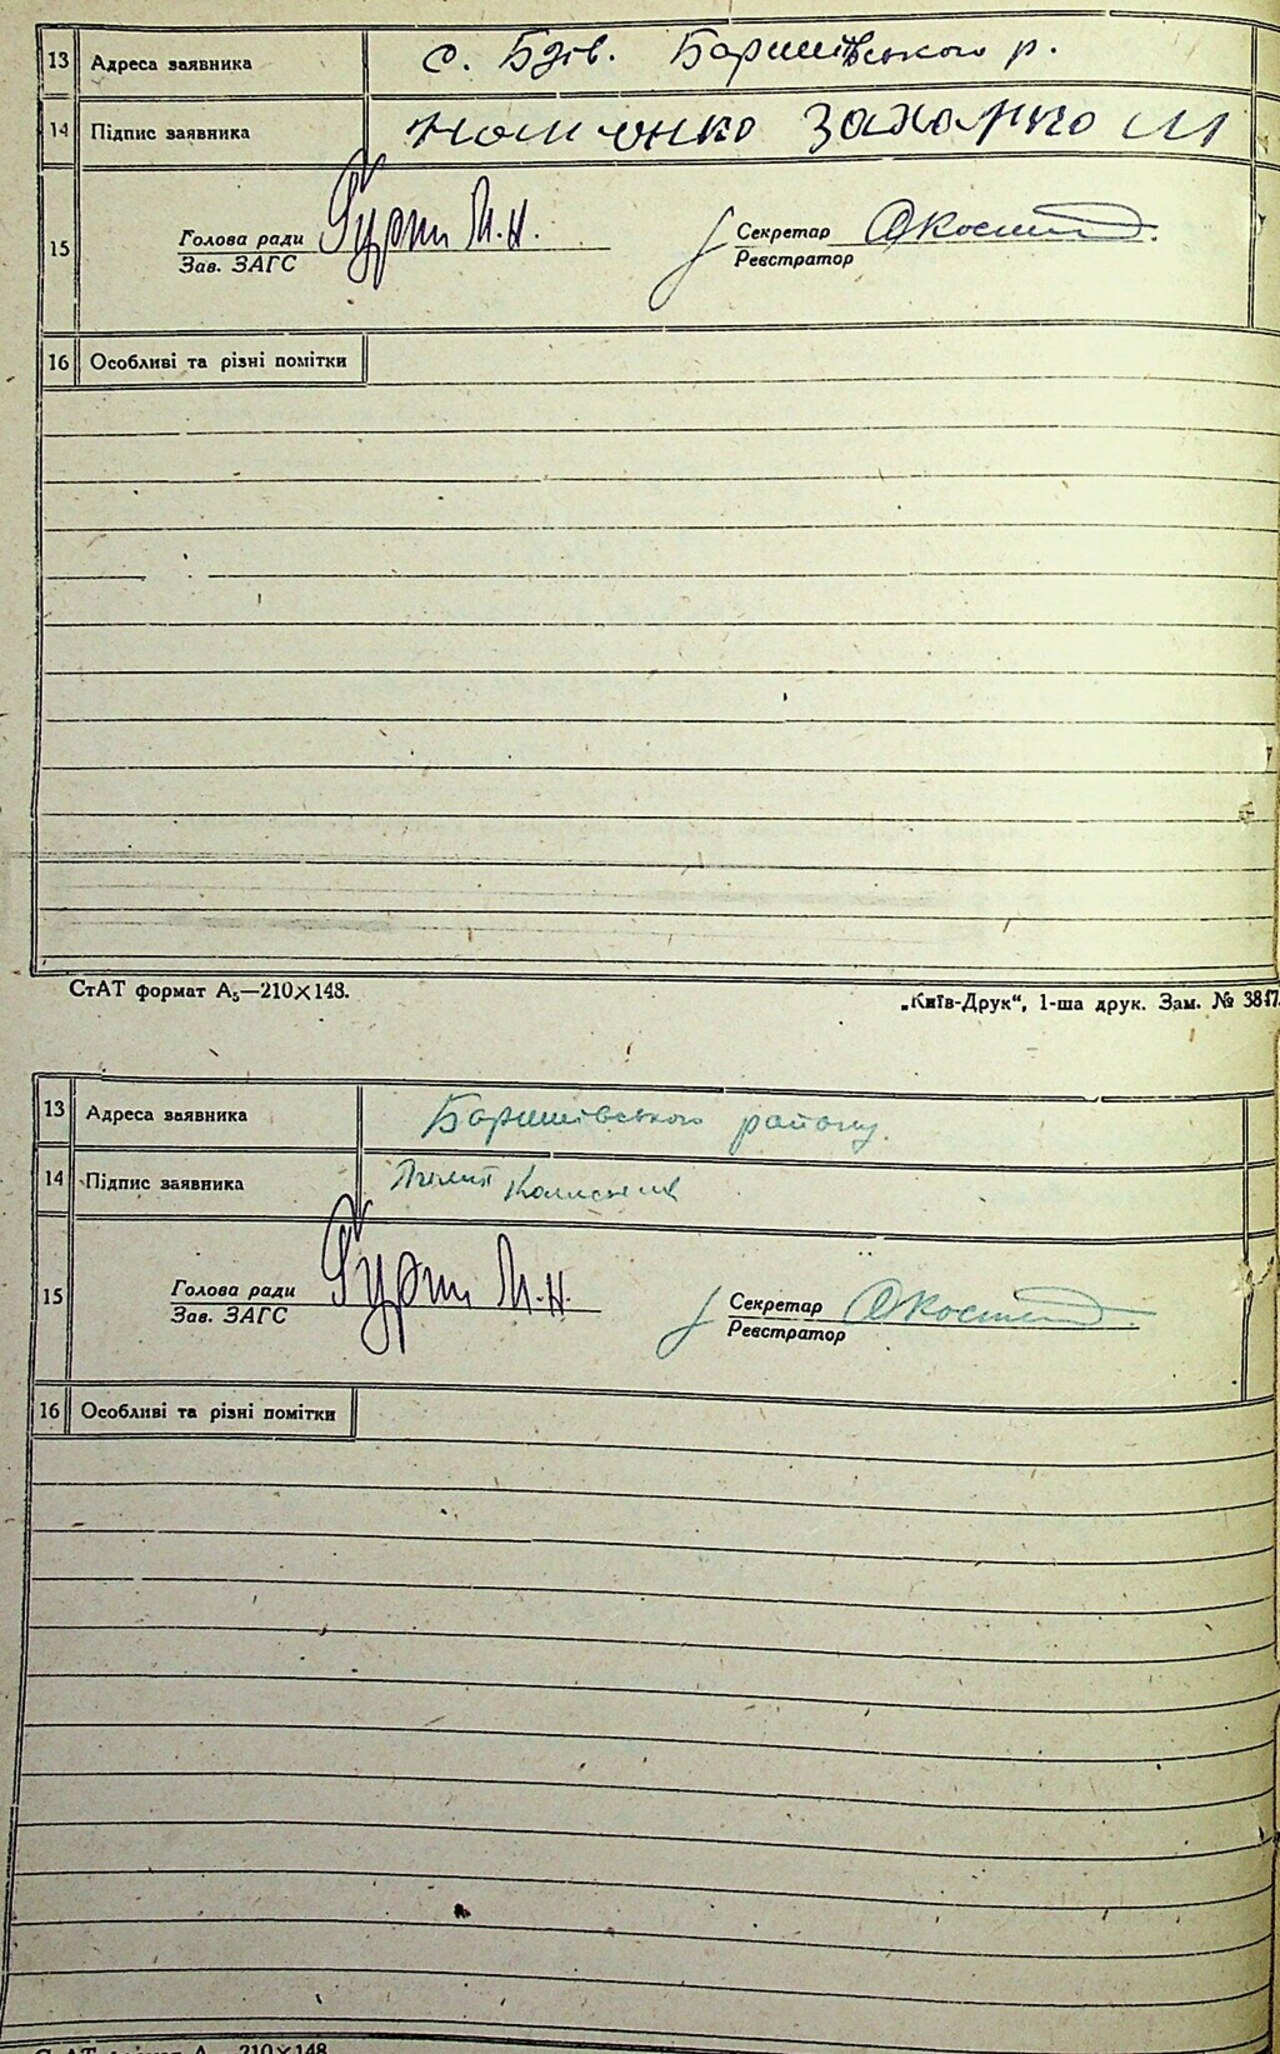 13 Адреса заявника с. Бзів. Баришівського р.
14 Підпис заявника
15 Голова ради М.Н. Секретар
Зав. ЗАГС Реєстратор
16 Особливі та різні помітки
СтАТ формат А₅—210×148.
„Київ-Друк“, 1-ша друк. Зам. № 3817.
13 Адреса заявника Баришівського району.
14 Підпис заявника
15 Голова ради М.Н. Секретар
Зав. ЗАГС Реєстратор
16 Особливі та різні помітки
210×148